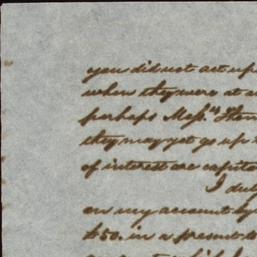 you did not act up
when they were at a
perhaps Messrs
they may yet go up
of interest are capita
I du
on my account by
$50. in a present to